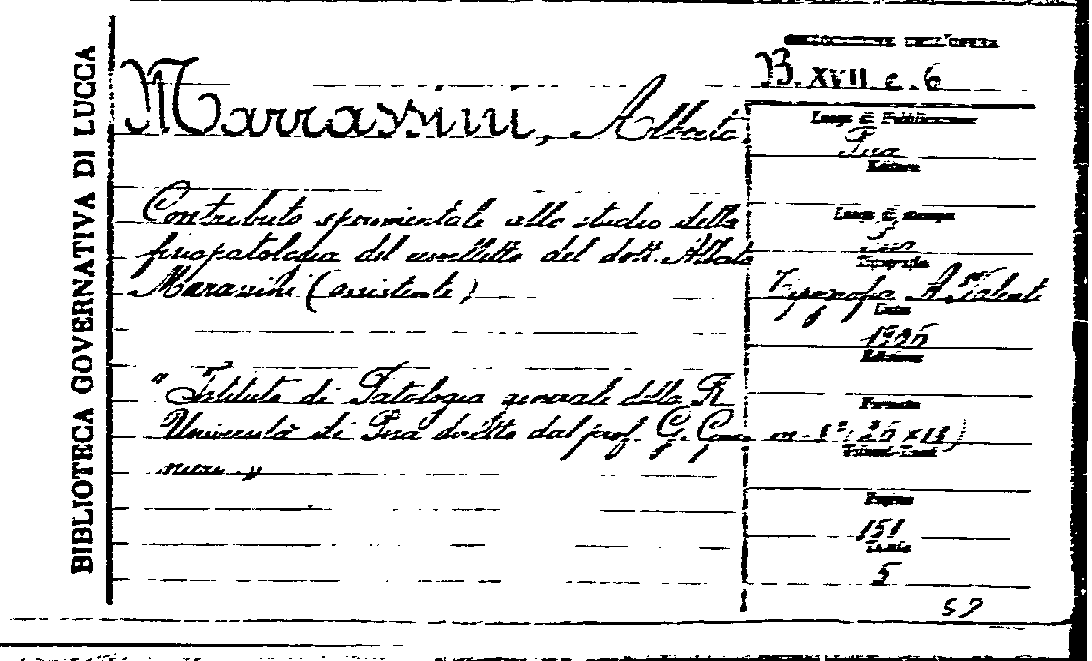 BIBLIOTECA GOVERNATIVA DI LUCCA
COLLOCAZIONE DELL'OPERA
B. XVII e. 6
Marrassini, Alberto
Luogo di Pubblicazione
Pisa
Editore
Contributo sperimentale allo studio della
fisiopatologia del cervelletto del dott. Alberto
Marassini (assistente)
Luogo di stampa
Pisa
Tipografia
Tipografia A. Valenti
Data
Edizione
"Istituto di Patologia generale della R.
Università di Pisa diretto dal prof. G. Guar
nieri"
Formato
in-8° (26 x 18)
Pagine
151
Tavole
5
57